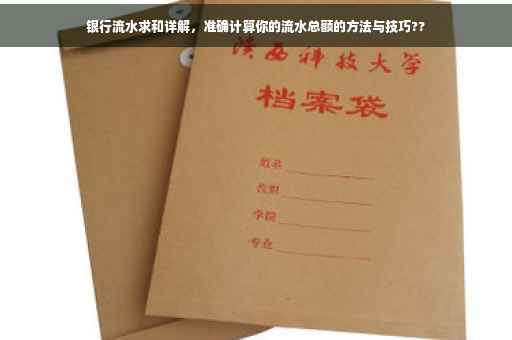 银行流水求和详解，准确计算你的流水总额的方法与技巧??
陕西科技大学
档案袋
姓名
学院
专业